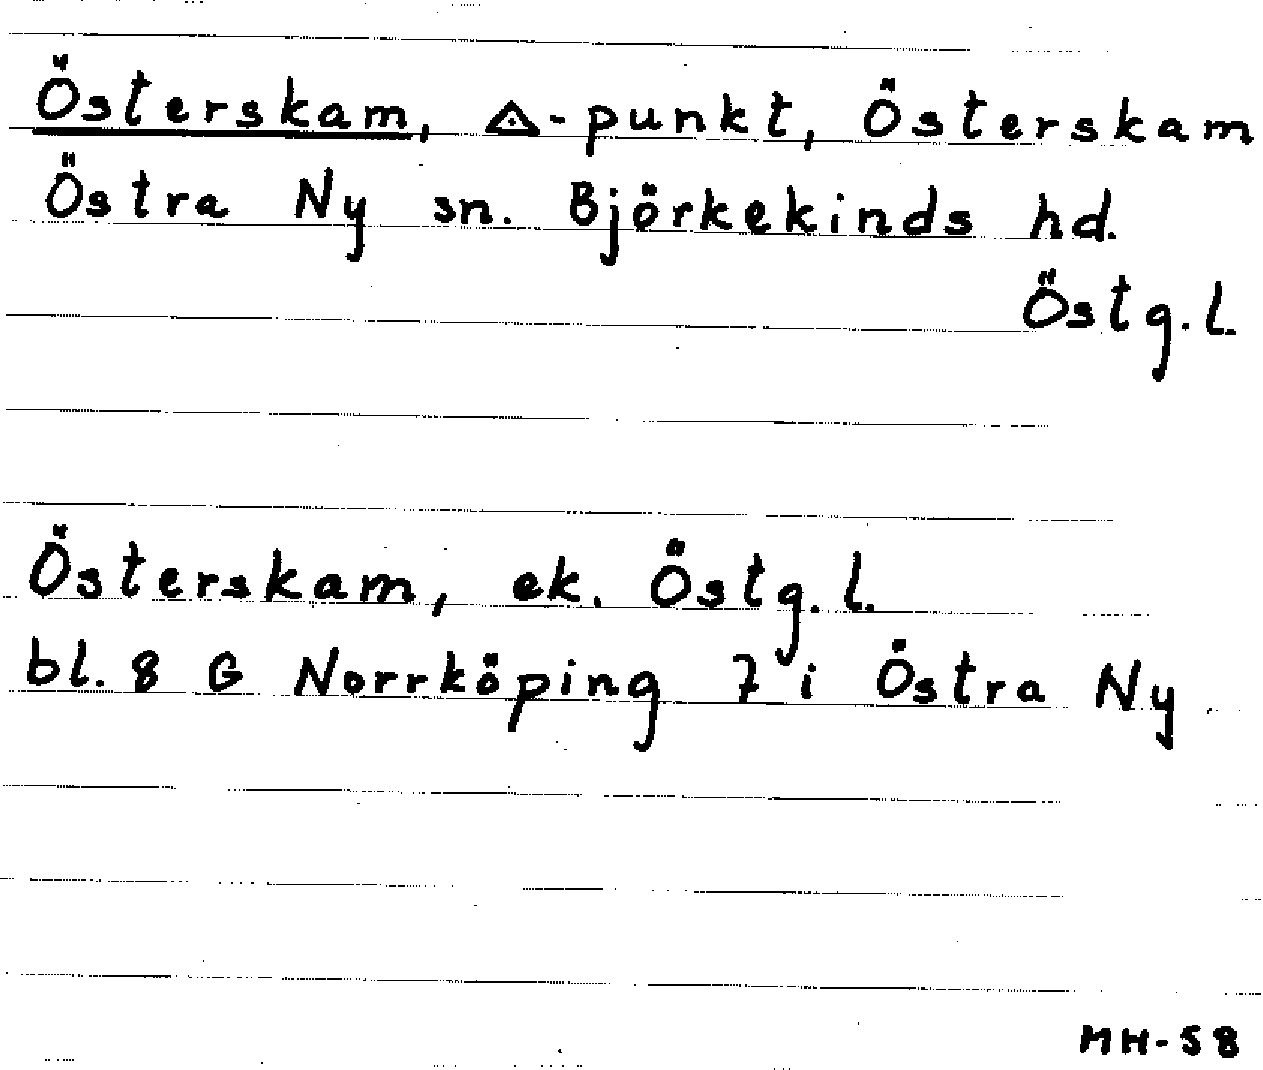 Österskam, ◬-punkt, Österskam
Östra Ny sn. Björkekinds hd.
Östg.l.
Österskam, ek. Östg.l.
bl. 8 G Norrköping 7 i Östra Ny
MH-58